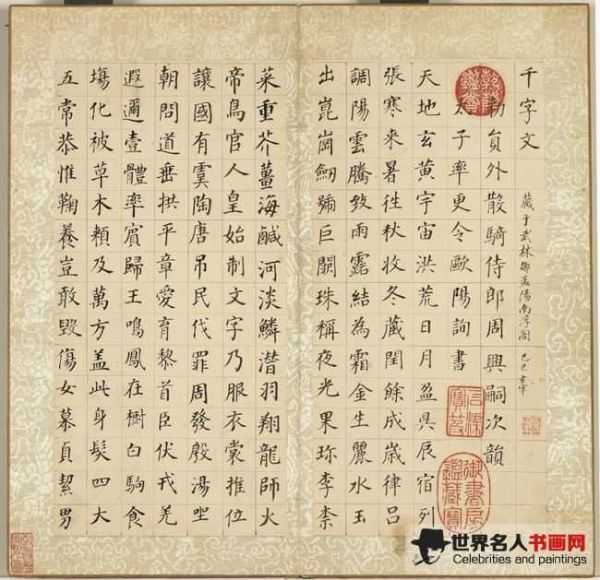 千字文
勅員外散騎侍郎周興嗣次韻
太子率更令歐陽詢書
天地玄黃宇宙洪荒日月盈昃辰宿列
張寒來暑徃秋收冬藏閏餘成歲律呂
調陽雲騰致雨露結為霜金生麗水玉
出崑崗劒號巨闕珠稱夜光果珍李柰
菜重芥薑海鹹河淡鱗潛羽翔龍師火
帝鳥官人皇始制文字乃服衣裳推位
讓國有虞陶唐吊民伐罪周發殷湯坐
朝問道垂拱平章愛育黎首臣伏戎羌
遐邇壹體率賓歸王鳴鳳在樹白駒食
塲化被草木賴及萬方盖此身髮四大
五常恭惟鞠養豈敢毀傷女慕貞絜男
藏于武林
乾隆鑑賞
世界名人书画网
Celebrities and paintings